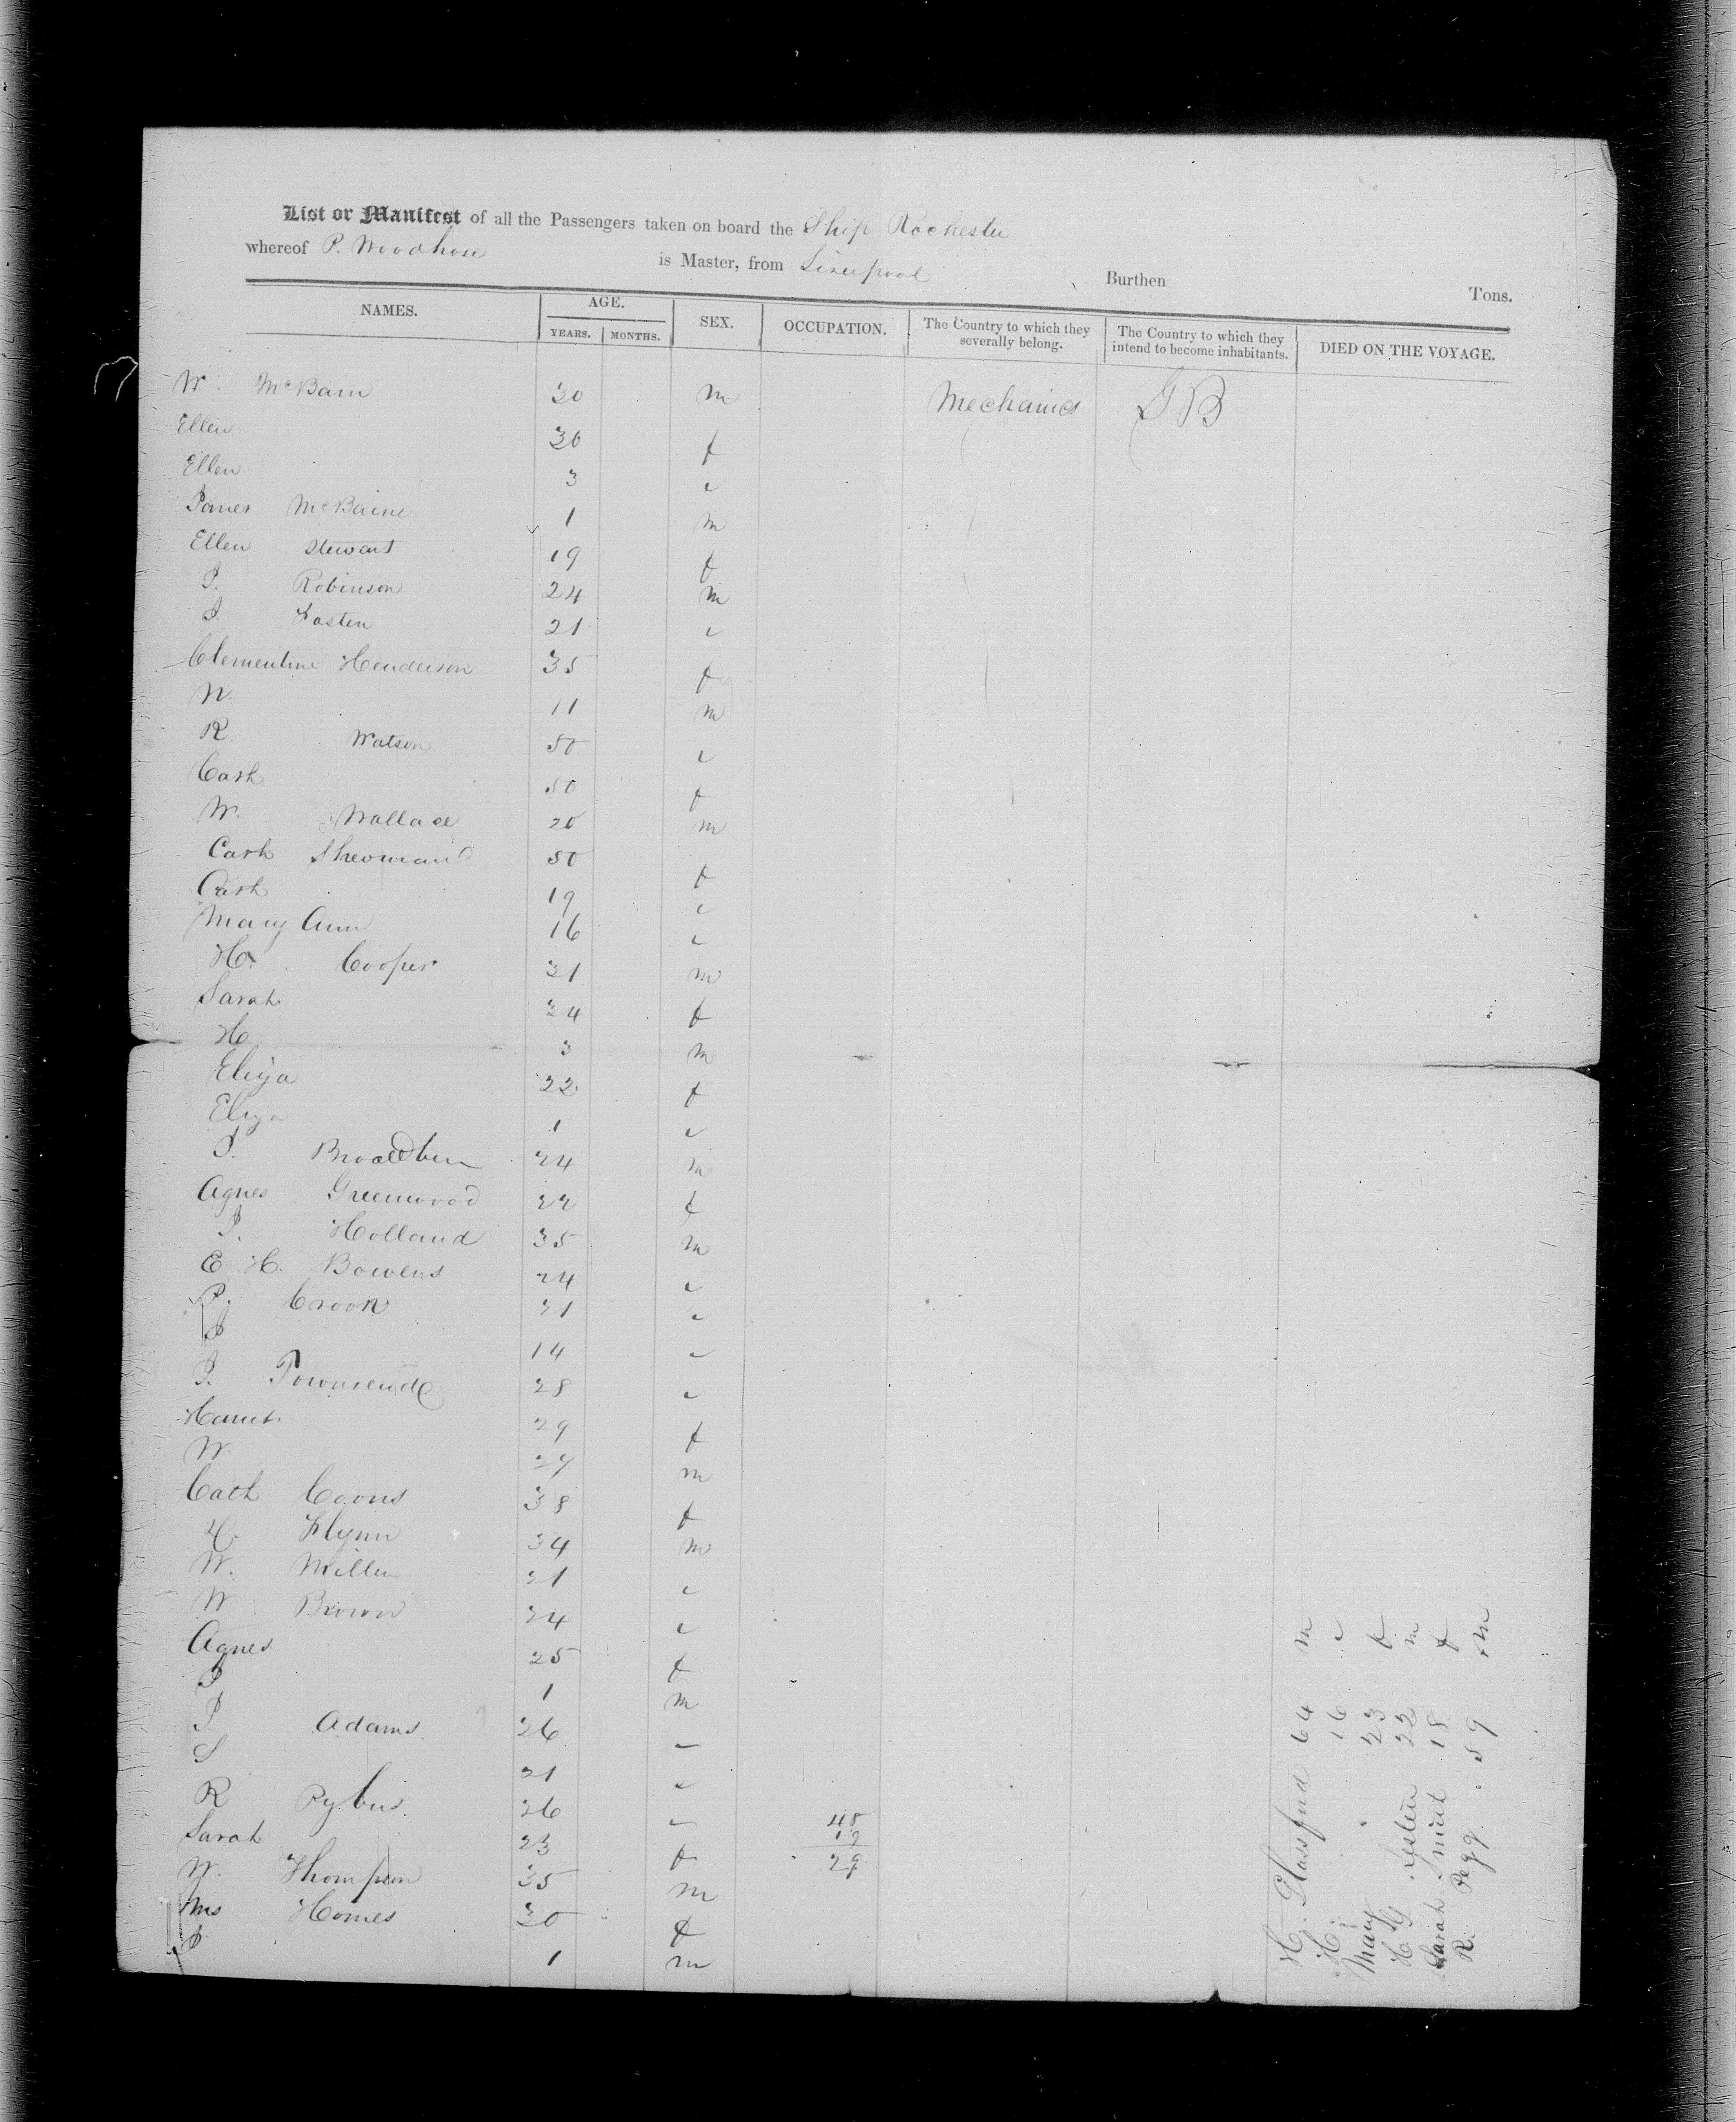 List or Manifest of all the Passengers taken on board the Ship Rochester
whereof P. Woodhouse is Master, from Liverpool Burthen Tons.
NAMES. AGE. YEARS. MONTHS. SEX. OCCUPATION. The Country to which they severally belong. The Country to which they intend to become inhabitants. DIED ON THE VOYAGE.
W. McBain 30 m Mechanics GB
Ellen 30 f
Ellen 3 "
James McBaine 1 m
Ellen Stewart 19 f
J. Robinson 24 m
J. Fasten 21 "
Clementine Henderson 35 f
W. 11 m
R. Watson 50 "
Cath 50 f
W. Wallace 20 m
Cath Shewman 50 f
Cath 19 "
Mary Ann 16 "
H. Cooper 31 m
Sarah 34 f
H 3 m
Eliza 22 f
Eliza 1 "
J. Broadben 24 m
Agnes Greenwood 22 f
J. Holland 35 m
E H. Bowers 24 "
P. Crook 31 "
J 14 "
J. Townsend 28 "
Harriet 29 f
W. 27 m
Cath Coons 38 f
H. Flynn 34 m
W. Miller 21 "
W Brown 24 "
Agnes 25 f
J 1 m
J. Adams 26 "
S 21 "
R Pybus 26 "
Sarah 23 f
W. Thompson 35 m
Mrs Homes 30 f
J 1 m
48
19
29
H. Glassford 64 m
H. 16 "
Mary 23 f
H G Lester 22 m
Sarah 18 f
R. Pegg 59 m